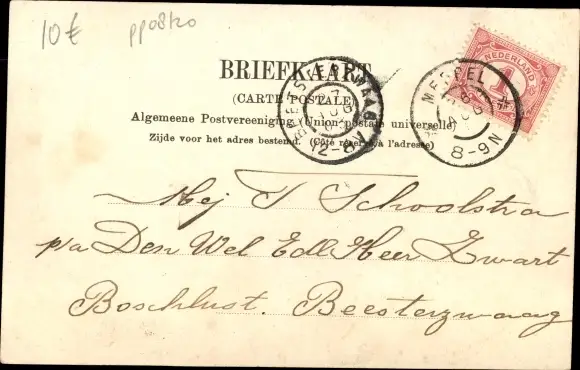 10€ pp08120
NEDERLAND
1
BRIEFKAART
(CARTE POSTALE)
Algemeene Postvereeniging (Union postale universelle)
Zijde voor het adres bestemd. (Côté réservé à l'adresse)
BEETSTERZWAAG
27 AUG
12-
MEPPEL
AUG
8-9N
Mej T Schoolstra
p/a Den Wel Edl Heer Zwart
Boschlust. Beesterzwaag